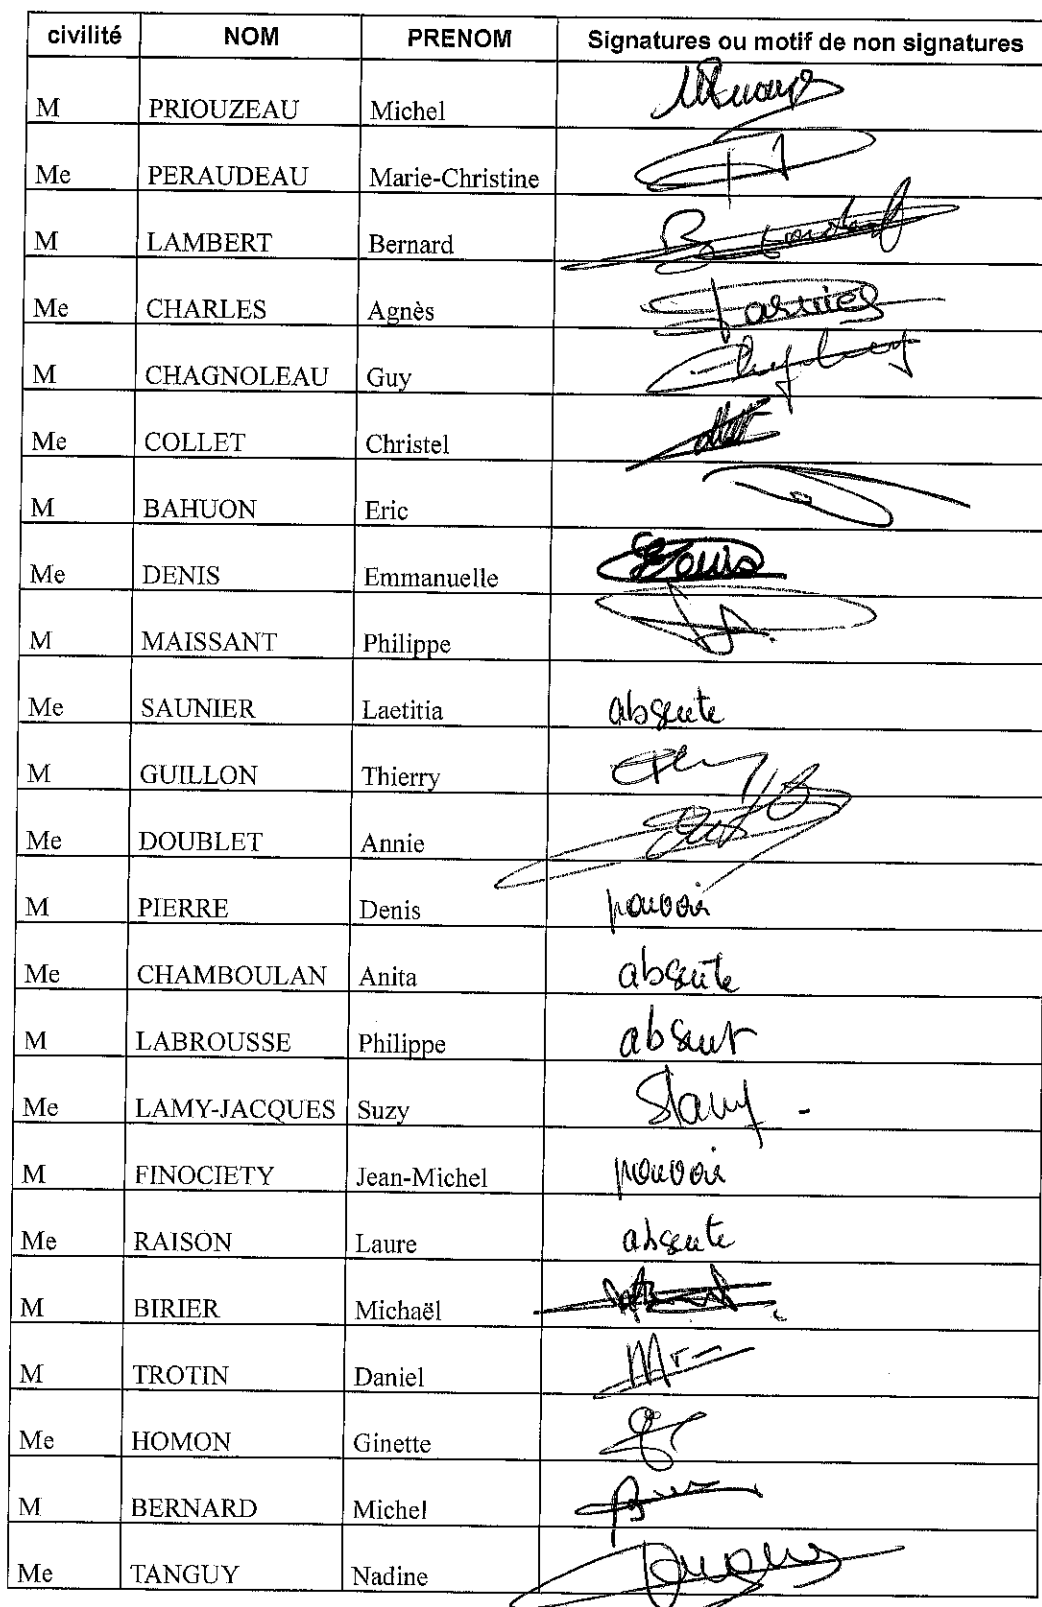 civilité NOM PRENOM Signatures ou motif de non signatures
M PRIOUZEAU Michel
Me PERAUDEAU Marie-Christine
M LAMBERT Bernard
Me CHARLES Agnès
M CHAGNOLEAU Guy
Me COLLET Christel
M BAHUON Eric
Me DENIS Emmanuelle
M MAISSANT Philippe
Me SAUNIER Laetitia absente
M GUILLON Thierry
Me DOUBLET Annie
M PIERRE Denis pouvoir
Me CHAMBOULAN Anita absente
M LABROUSSE Philippe absent
Me LAMY-JACQUES Suzy
M FINOCIETY Jean-Michel pouvoir
Me RAISON Laure absente
M BIRIER Michaël
M TROTIN Daniel
Me HOMON Ginette
M BERNARD Michel
Me TANGUY Nadine